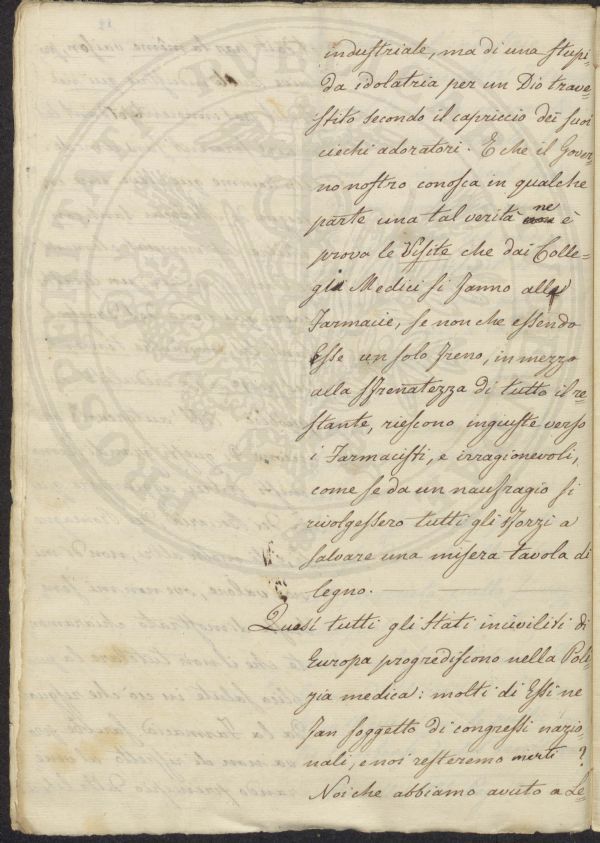 industriale, ma di una stupi=
da idolatria per un Dio trave=
stito secondo il capriccio dei suoi
ciechi adoratori. E che il Gover=
no nostro conosca in qualche
parte una tal verità ne è
prova le Visite che dai Colle=
gii Medici si fanno alle
Farmacie, se non che essendo
Esse un solo freno, in mezzo
alla sfrenatezza di tutto il re=
stante, riescono ingiuste verso
i Farmacisti, e irragionevoli,
come se da un naufragio si
rivolgessero tutti gli sforzi a
salvare una misera tavola di
legno.
Quasi tutti gli Stati inciviliti di
Europa progrediscono nella Poli=
zia medica: molti di Essi ne
fan soggetto di congressi nazio=
nali, e noi resteremo inerti?
Noi che abbiamo avuto a Le=